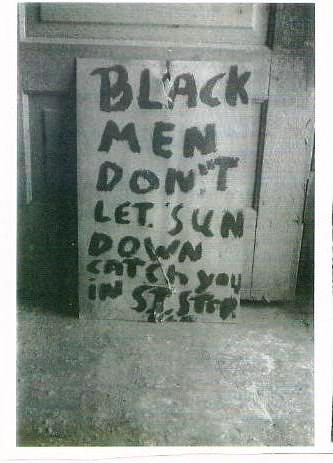 BLACK
MEN
DON'T
LET SUN
DOWN
CATCH YOU
IN ST. STEP.